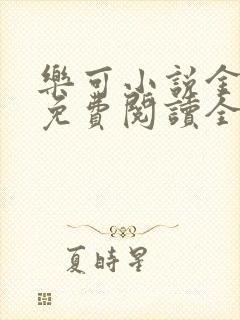 樂可小説全
免費閱讀全
夏時星